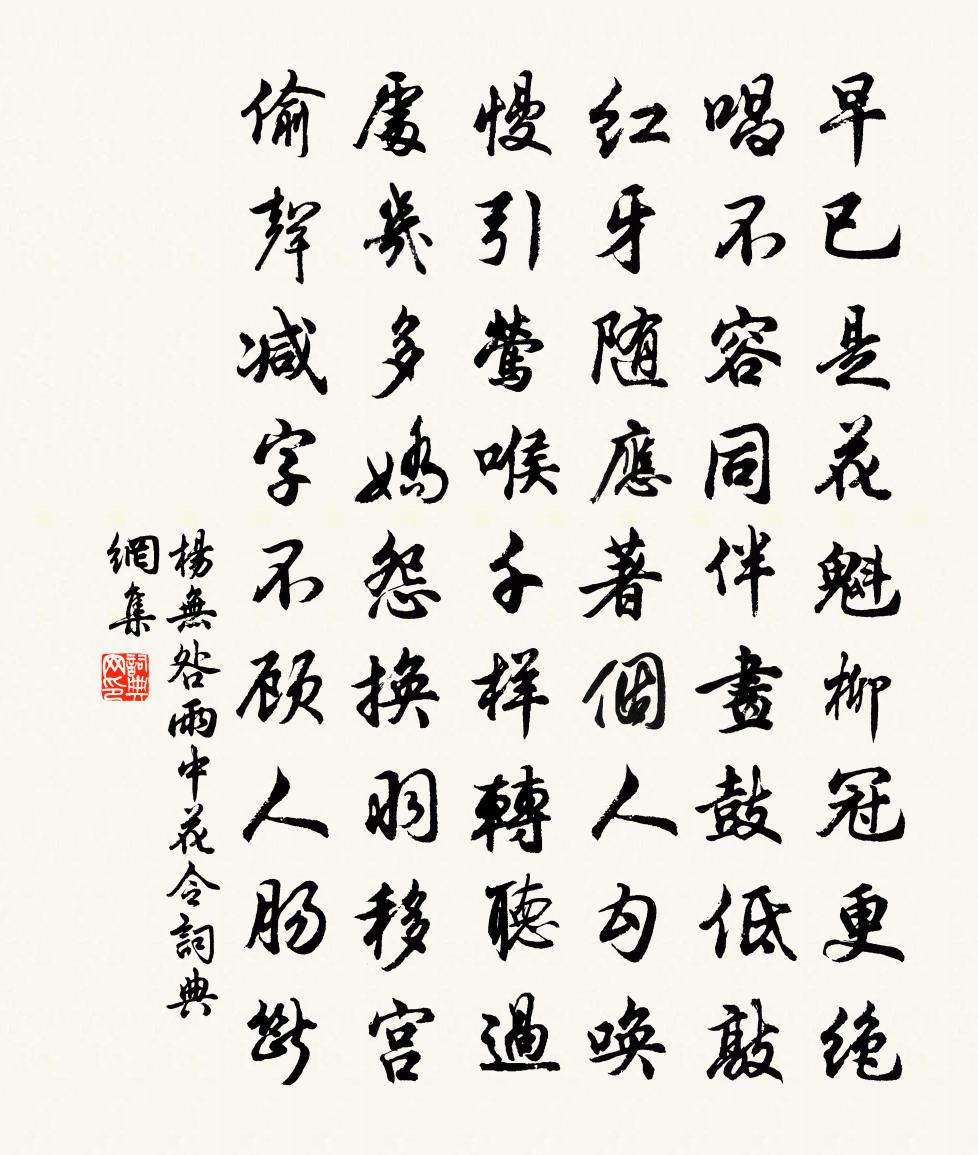 早已是花魁柳冠更绝
唱不容同伴畫鼓低敲
红牙随應著個人勾唤
慢引鶯喉千样轉聽過
處幾多嬌怨换羽移宫
偷聲减字不顾人肠斷
楊無咎雨中花令詞典
網集
詞典网印